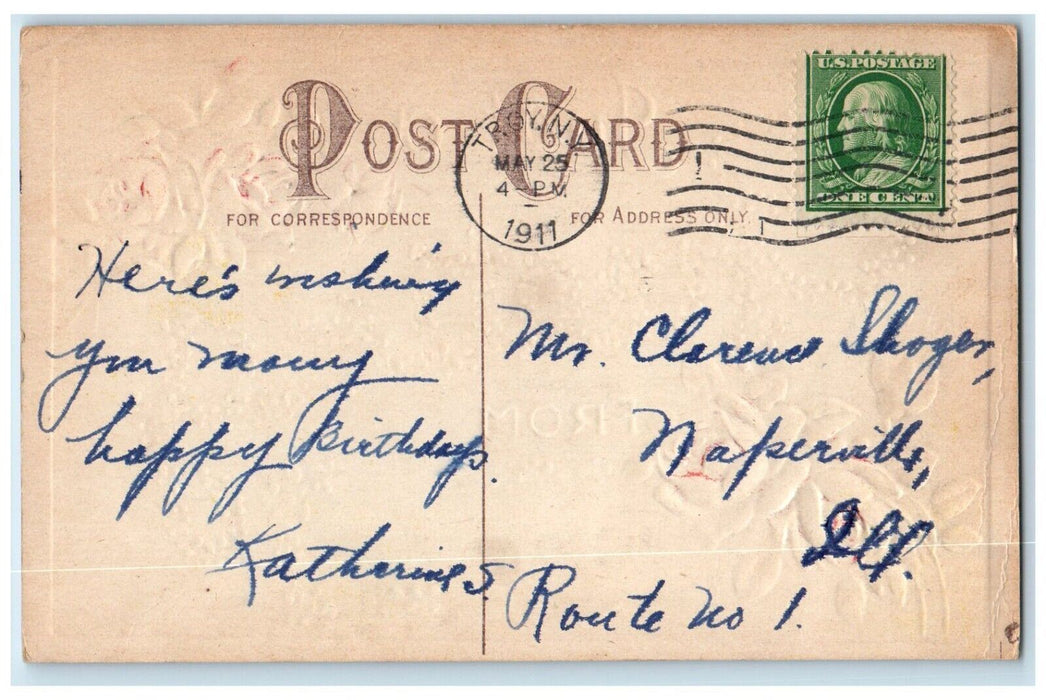 POST CARD
U.S. POSTAGE
TROY, N.Y.
MAY 25
4 PM
1911
ONE CENT
FOR CORRESPONDENCE
FOR ADDRESS ONLY.
Here's wishing
you many
happy Birthdays.
Katherine S
Mr. Clarence Shoger,
Naperville,
Ill.
Route No 1.
FROM